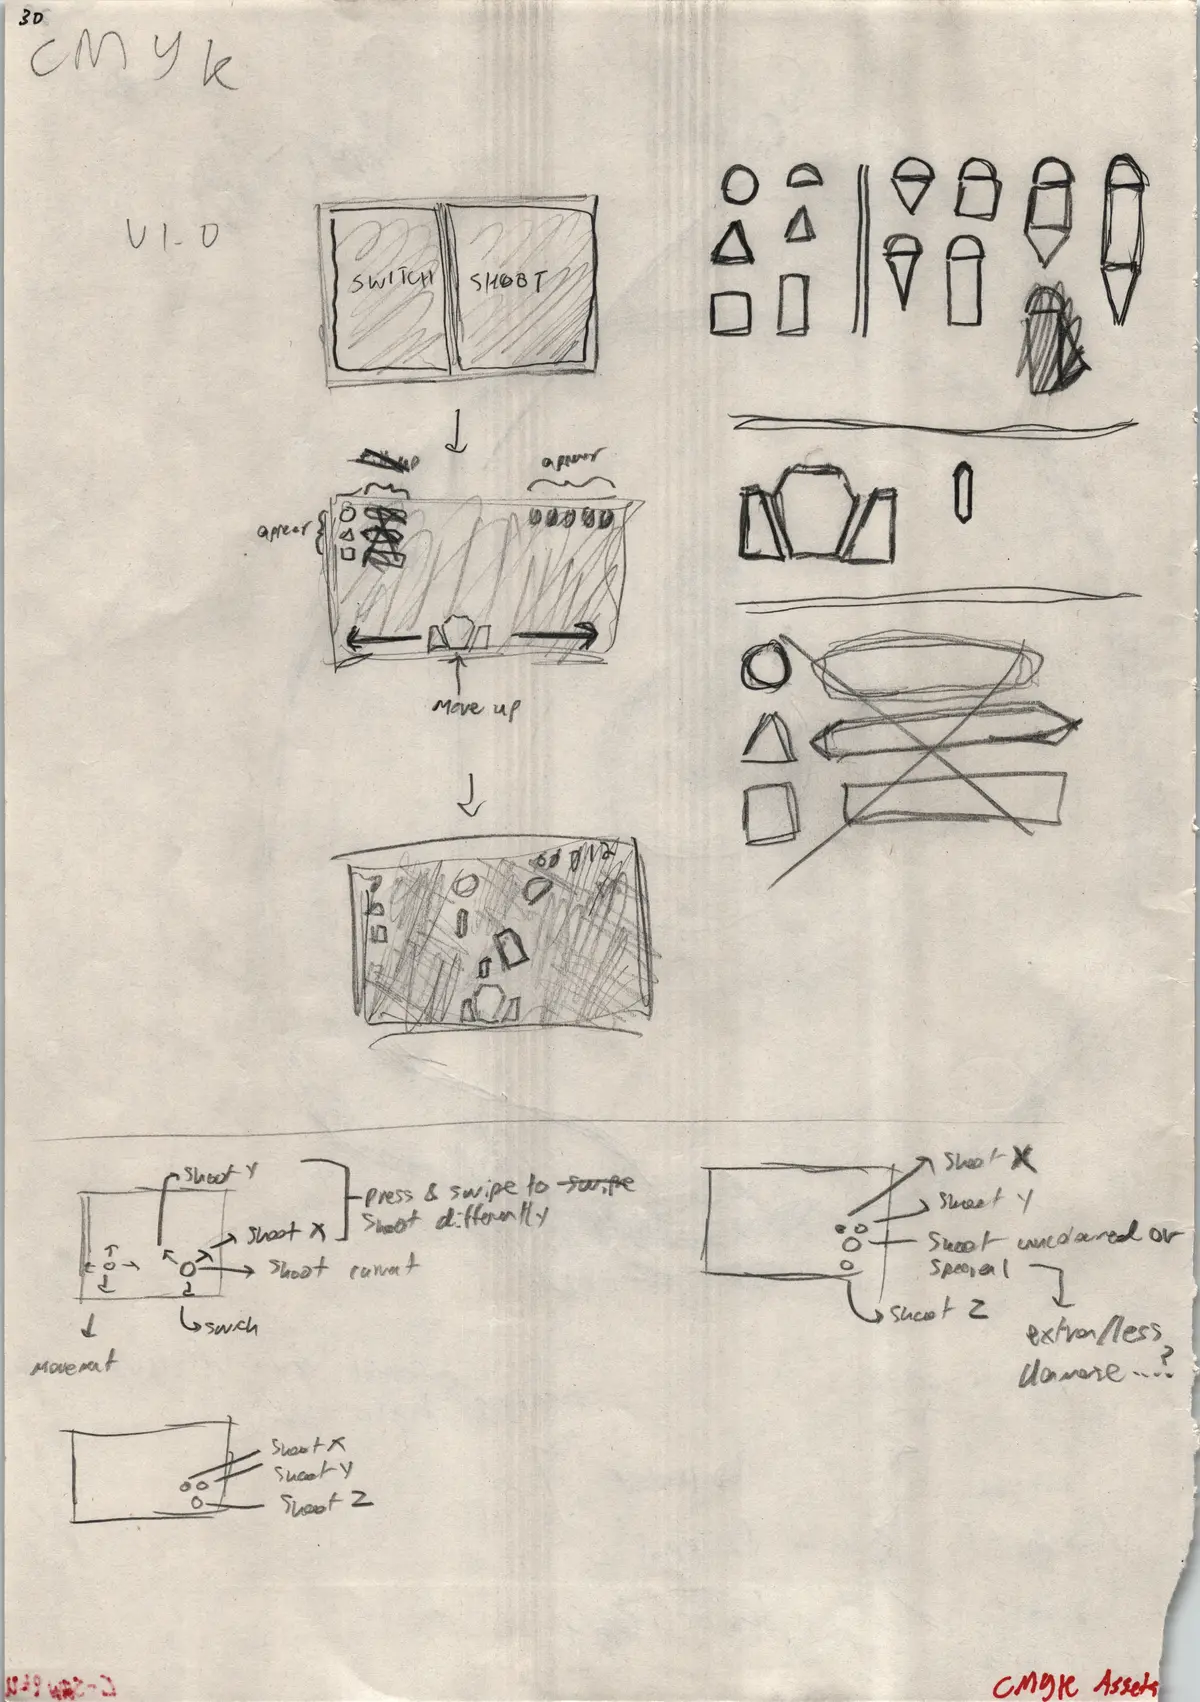 30
CMYK
V1.0
SWITCH
SHOOT
apear
apear
Move up
Shoot Y
Press & swipe to swipe
Shoot differently
Shoot X
Shoot current
Swich
Movement
Shoot X
Shoot Y
Shoot uncoloured or
special
Shoot Z
extra/less
damage....?
Shoot X
Shoot Y
Shoot Z
CMYK Assets